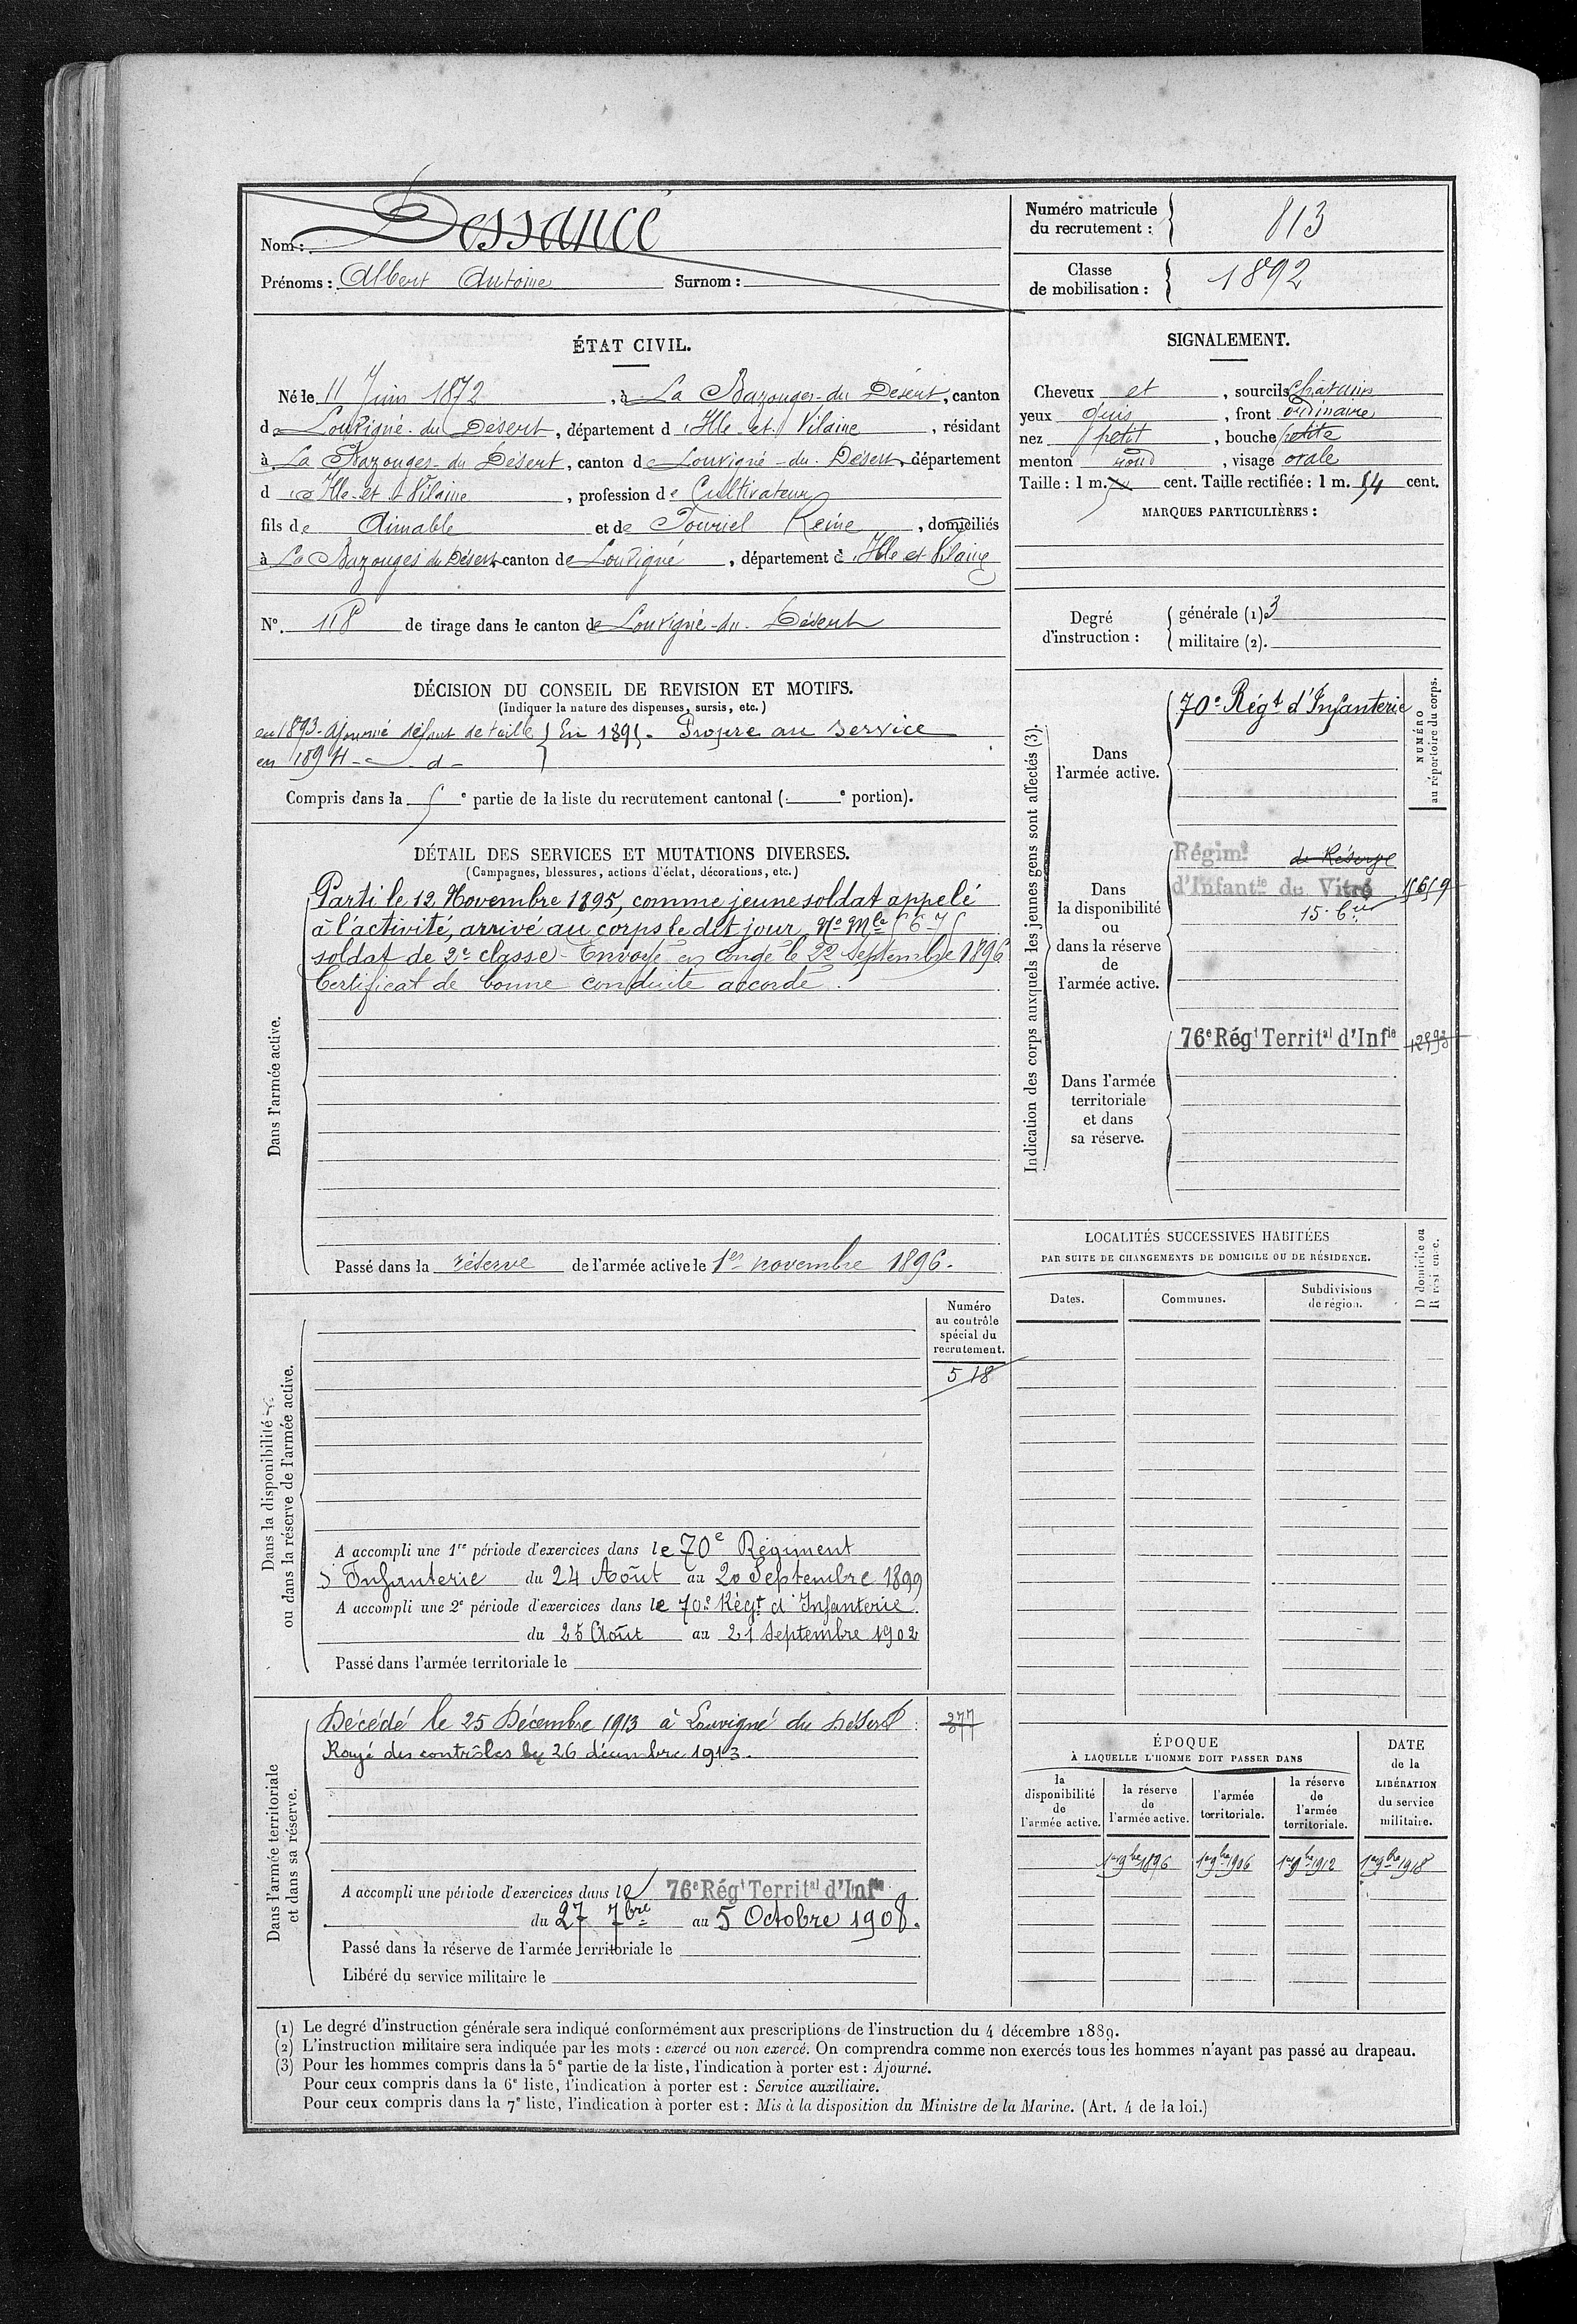 Nom : Dessancé
Prénoms : Albert Antoine Surnom :
Numéro matricule du recrutement : 813
Classe de mobilisation : 1892
ÉTAT CIVIL.
Né le 11 Juin 1872, à La Bazouges-du Désert, canton
de Louvigné-du Désert, département d'Ille-et-Vilaine, résidant
à La Bazouges-du Désert, canton de Louvigné-du-Désert, département
d'Ille-et-Vilaine, profession de Cultivateur
fils de Aimable et de Touriel Reine, domiciliés
à La Bazouges du Désert, canton de Louvigné, département d'Ille et Vilaine
N° 118 de tirage dans le canton de Louvigné-du-Désert
SIGNALEMENT.
Cheveux et, sourcils châtains
yeux gris, front ordinaire
nez petit, bouche petite
menton rond, visage ovale
Taille : 1 m. cent. Taille rectifiée : 1 m. 54 cent.
MARQUES PARTICULIÈRES :
Degré d'instruction : générale (1) 3
militaire (2).
DÉCISION DU CONSEIL DE REVISION ET MOTIFS.
(Indiquer la nature des dispenses, sursis, etc.)
en 1893 - ajourné défaut de taille } En 1895. Propre au service
en 1894 - d -
Compris dans la 5e partie de la liste du recrutement cantonal ( e portion).
DÉTAIL DES SERVICES ET MUTATIONS DIVERSES.
(Campagnes, blessures, actions d'éclat, décorations, etc.)
Dans l'armée active.
Parti le 12 Novembre 1895, comme jeune soldat appelé
à l'activité, arrivé au corps le dit jour, No Mle 5675
soldat de 2e classe - Envoyé en congé le 22 Septembre 1896
Certificat de bonne conduite accordé.
Passé dans la réserve de l'armée active le 1er novembre 1896.
Indication des corps auxquels les jeunes gens sont affectés (3).
NUMÉRO au répertoire du corps.
Dans l'armée active.
70e Régt d'Infanterie
Dans la disponibilité ou dans la réserve de l'armée active.
Régimt de Réserve
d'Infantie de Vitré
15. 6
Dans l'armée territoriale et dans sa réserve.
76e Régt Territal d'Infie
LOCALITÉS SUCCESSIVES HABITÉES
PAR SUITE DE CHANGEMENTS DE DOMICILE OU DE RÉSIDENCE.
Dates. Communes. Subdivisions de région. D domicile ou R résidence.
Dans la disponibilité ou dans la réserve de l'armée active.
Numéro au contrôle spécial du recrutement.
518
A accompli une 1re période d'exercices dans le 70e Régiment
d'Infanterie du 24 Août au 20 Septembre 1899
A accompli une 2e période d'exercices dans le 70e Régt d'Infanterie.
du 25 Août au 21 Septembre 1902
Passé dans l'armée territoriale le
Dans l'armée territoriale et dans sa réserve.
Décédé le 25 Décembre 1913 à Louvigné du Désert.
Rayé des contrôles le 26 décembre 1913.
A accompli une période d'exercices dans le 76e Régt Territal d'Infie
du 27 7bre au 5 Octobre 1908.
Passé dans la réserve de l'armée territoriale le
Libéré du service militaire le
ÉPOQUE
À LAQUELLE L'HOMME DOIT PASSER DANS
la disponibilité de l'armée active.
la réserve de l'armée active.
l'armée territoriale.
la réserve de l'armée territoriale.
DATE de la LIBÉRATION du service militaire.
1er 9bre 1896 1er 9bre 1906 1er 9bre 1912 1er 9bre 1918
(1) Le degré d'instruction générale sera indiqué conformément aux prescriptions de l'instruction du 4 décembre 1889.
(2) L'instruction militaire sera indiquée par les mots : exercé ou non exercé. On comprendra comme non exercés tous les hommes n'ayant pas passé au drapeau.
(3) Pour les hommes compris dans la 5e partie de la liste, l'indication à porter est : Ajourné.
Pour ceux compris dans la 6e liste, l'indication à porter est : Service auxiliaire.
Pour ceux compris dans la 7e liste, l'indication à porter est : Mis à la disposition du Ministre de la Marine. (Art. 4 de la loi.)